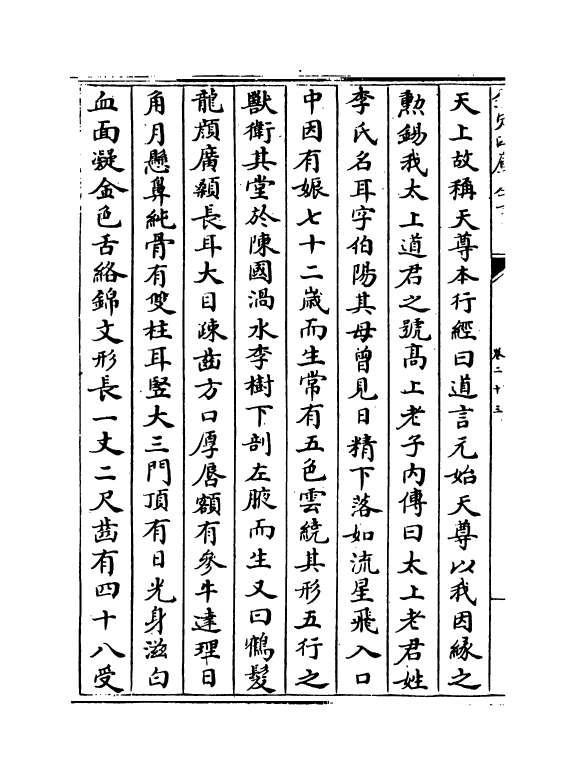 卷二十三
天上故稱天尊本行經曰道言元始天尊以我因緣之
勲錫我太上道君之號髙上老子内傳曰太上老君姓
李氏名耳字伯陽其母曾見日精下落如流星飛入口
中因有娠七十二嵗而生常有五色雲繞其形五行之
獸衛其堂於陳國渦水李樹下剖左腋而生又曰鶴髪
龍顔廣顙長耳大目疎齒方口厚唇額有參牛達理日
角月懸鼻純骨有雙柱耳豎大三門頂有日光身滋白
血面凝金色舌絡錦文形長一丈二尺齒有四十八受